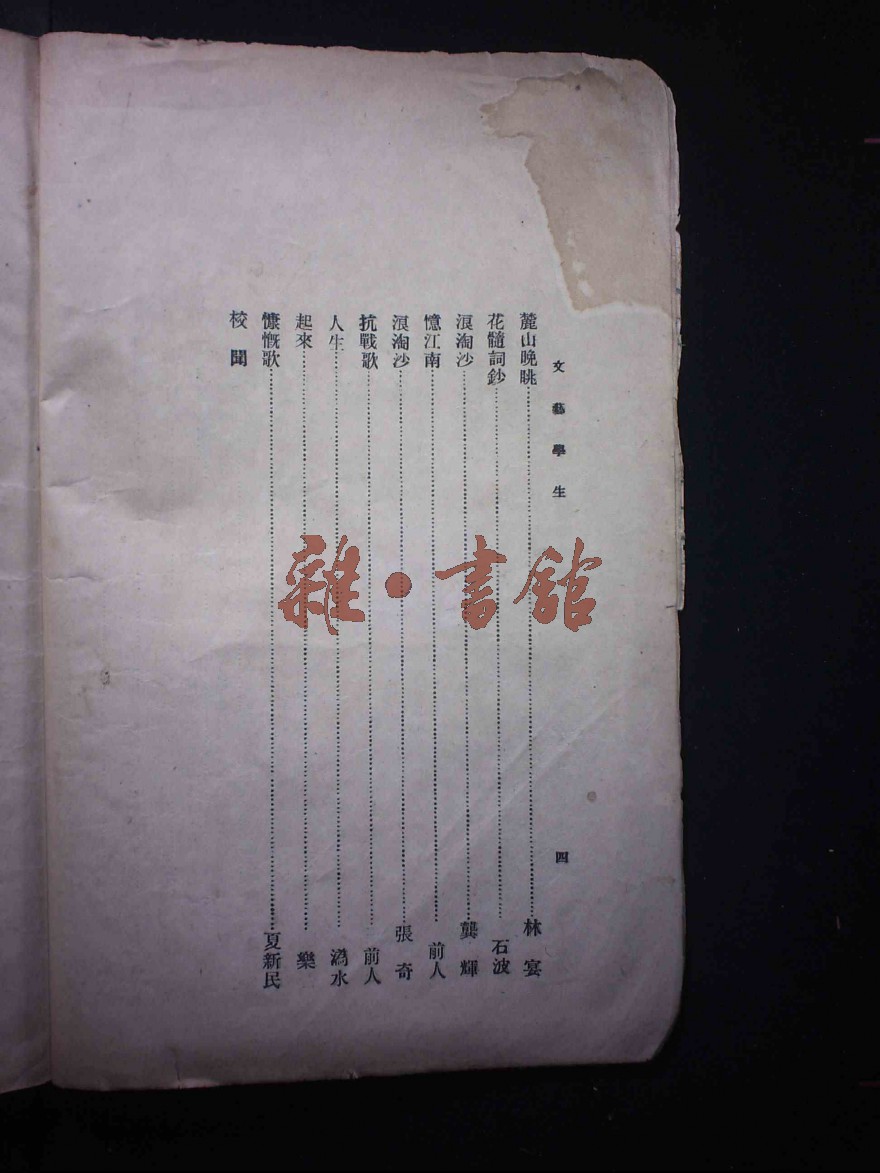 文藝學生 四
麓山晚眺……林宴
花髓詞鈔……石波
浪淘沙……龔輝
憶江南……前人
浪淘沙……張奇
抗戰歌……前人
人生……溈水
起來……樂
慷慨歌……夏新民
校聞
雜·書館